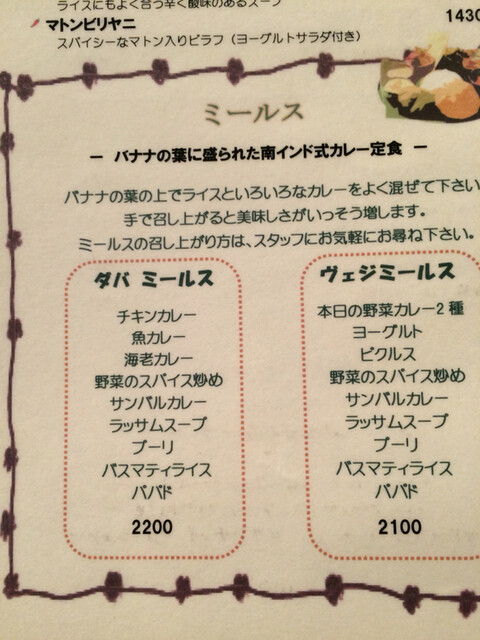 ライスにもよく合う辛く酸味のあるスープ
マトンビリヤニ 1430
スパイシーなマトン入りピラフ（ヨーグルトサラダ付き）
ミールス
－ バナナの葉に盛られた南インド式カレー定食 －
バナナの葉の上でライスといろいろなカレーをよく混ぜて下さい
手で召し上がると美味しさがいっそう増します。
ミールスの召し上がり方は、スタッフにお気軽にお尋ね下さい。
ダバ ミールス
チキンカレー
魚カレー
海老カレー
野菜のスパイス炒め
サンバルカレー
ラッサムスープ
プーリ
バスマティライス
パパド
2200
ヴェジミールス
本日の野菜カレー2種
ヨーグルト
ピクルス
野菜のスパイス炒め
サンバルカレー
ラッサムスープ
プーリ
バスマティライス
パパド
2100